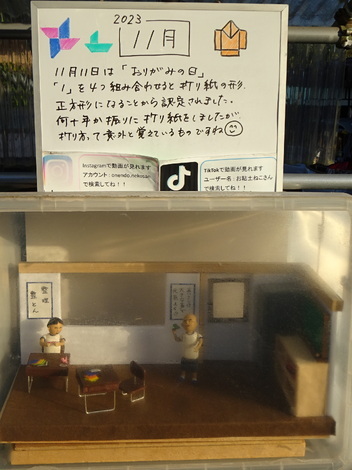 2023
11月
11月11日は「おりがみの日」
「1」を4つ組み合わせると折り紙の形、
正方形になることから認定されました。
何十年か振りに折り紙をしましたが
折り方って意外と覚えているものですね
Instagramで動画が見れます
で検索してね！！
TikTokで動画が見れます
ユーザー名：お粘土ねこさん
で検索してね！！